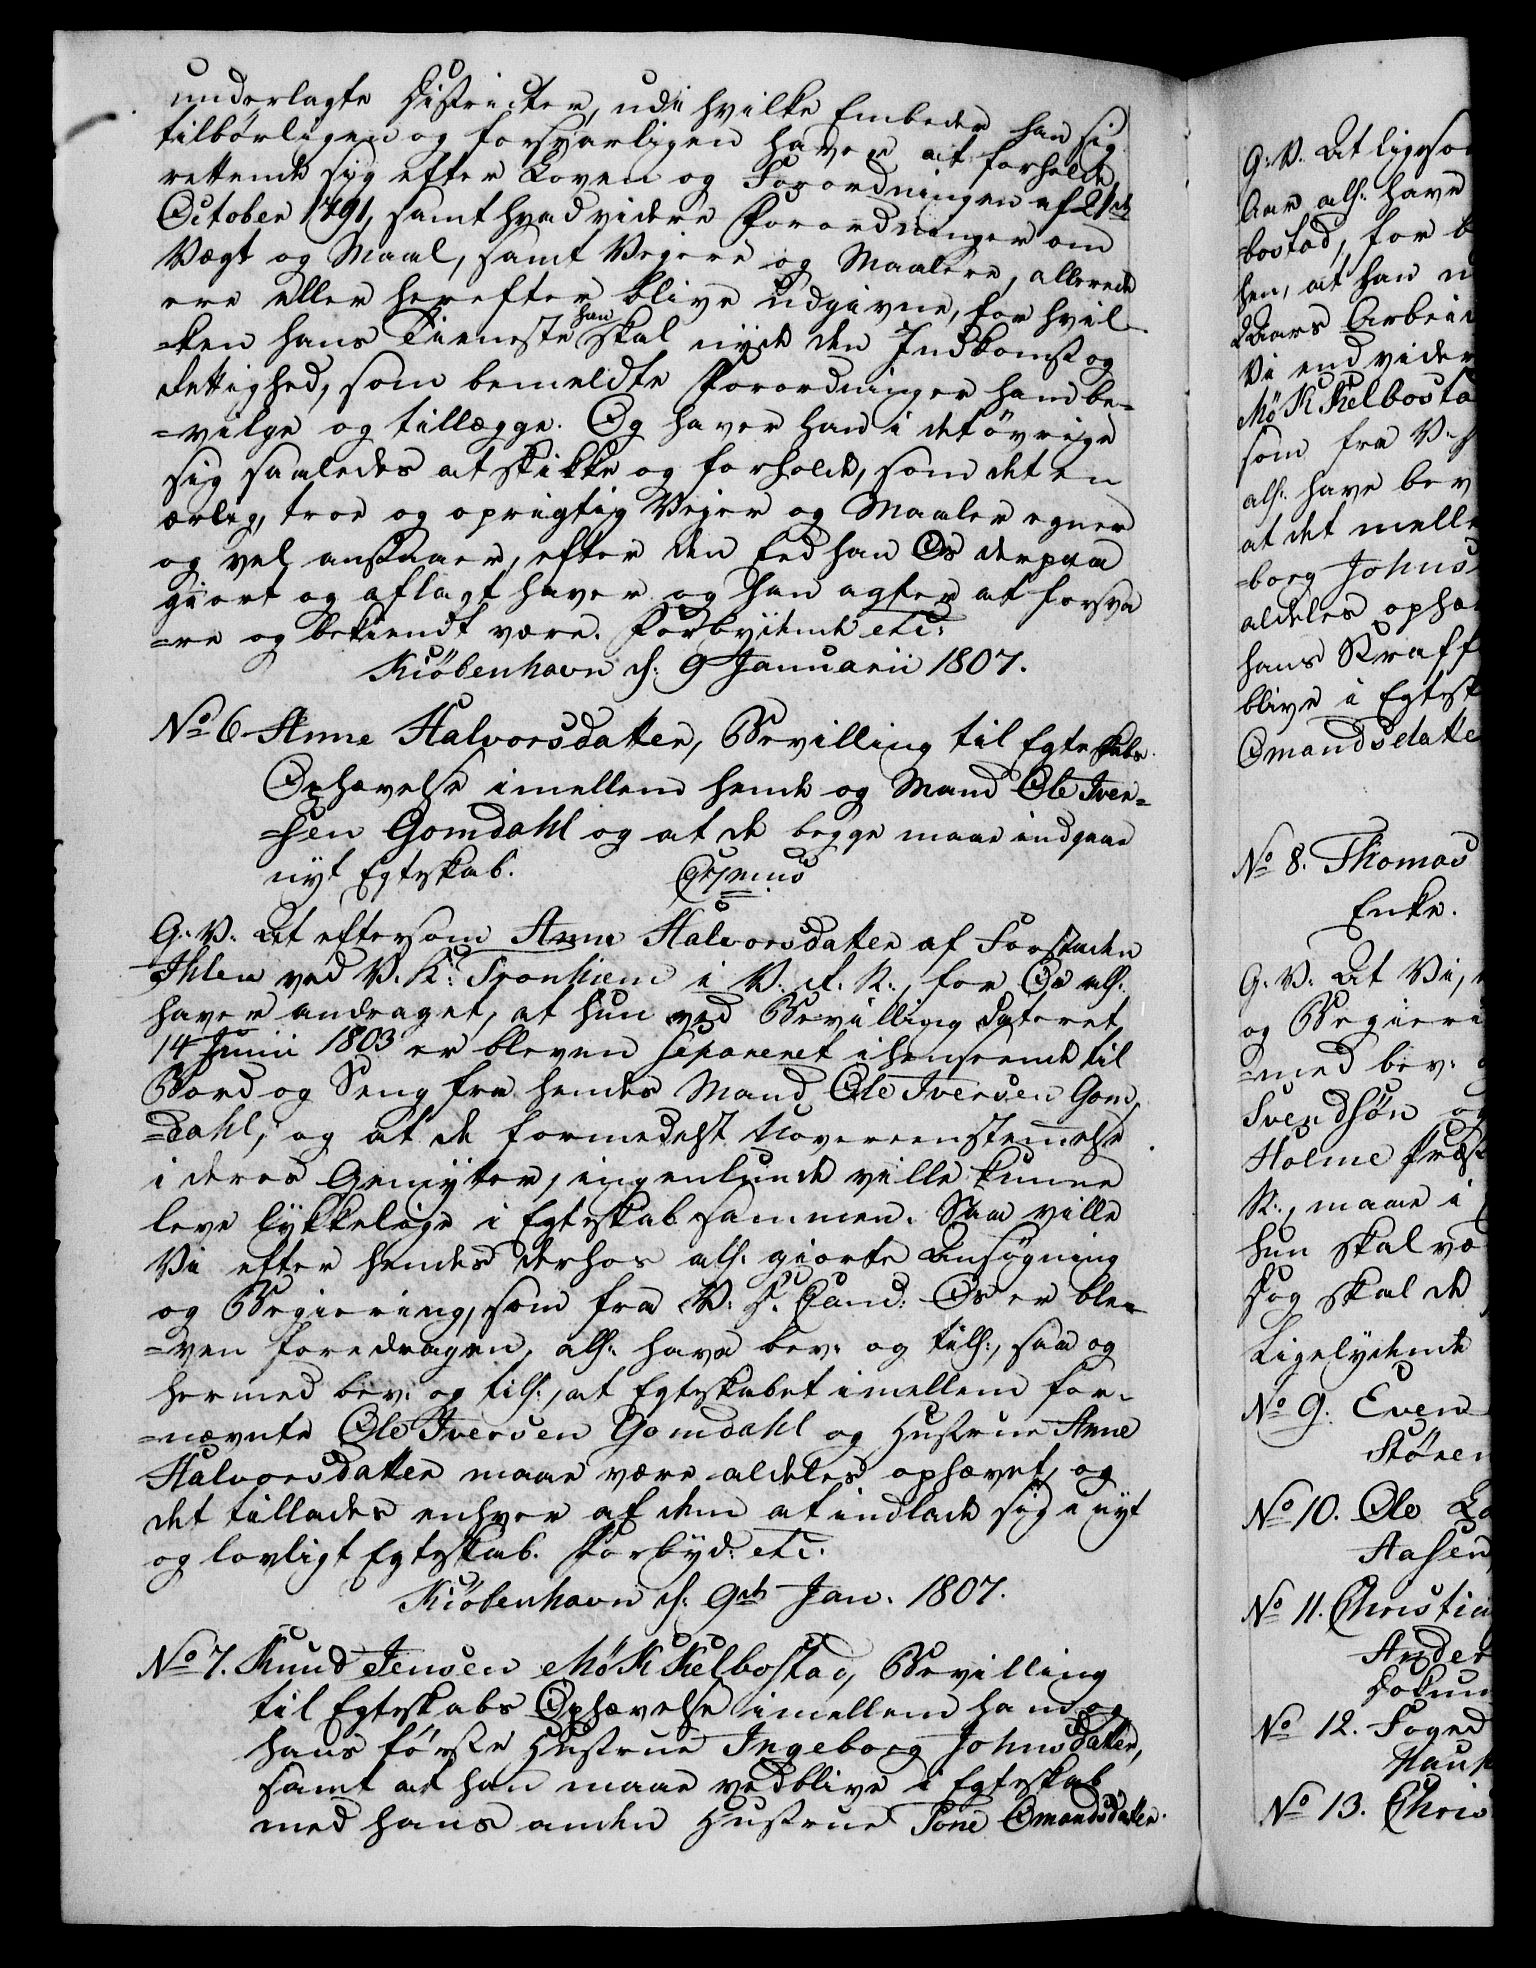 underlagte Districter, udi hvilke Embeder han sig
tilbørligen og forsvarligen haver at forholde,
rettende sig efter Loven og Forordningen af 21de
October 1791, samt hvad videre Forordninger om
Vægt og Maal, samt Vejere og Maalere, allerede
ere eller herefter blive udgivne, for hvil-
=ken hans Tieneste han skal nyde den Indkomst og
Rettighed, som bemeldte Forordninger ham be-
=vilge og tillægge. Og haver han i det øvrige
sig saaledes at skikke og forholde, som det en
ærlig, troe og oprigtig Vejer og Maaler egner
og vel anstaaer, efter den Eed han Os derpaa
giort og aflagt haver og han agter at forsva
=re og bekiendt være. Forbydende etc:
Kiöbenhavn d: 9 Januarii 1807.
No 6 Anne Halvorsdatter, Bevilling til Egteskabs
Ophævelse imellem hende og Mand Ole Iver=
=sen Gomdahl og at de begge maae indgaae
nyt Egteskab.
G: V: At eftersom Anne Halvorsdatter af Forstaden
Ihlen ved V. K: Tronhiem i V. R. N., for Os all:
haver andraget, at hun ved Bevilling dateret
14 Junii 1803 er bleven separeret i henseende til
Bord og Seng fra hendes Mand Ole Iversen Gom,
=dahl, og at de formedelst Uovereenstemmelse
i deres Gemytter, ingenlunde ville kunne
leve lykkelige i Egteskab sammen. Saa ville
Vi efter hendes derhos all: giorte Ansøgning
og Begiering, som fra V: D. Cand: Os er ble-
=ven foredragen, all: have bev: og till:, saa og
hermed bev: og till:, at Egteskabet imellem for-
=nævnte Ole Iversen Gomdahl og Hustrue Anne
Halvorsdatter maae være aldeles ophævet, og
det tillades enhver af dem at indlade sig i nyt
og lovligt Egteskab. Forbyd: etc.
Kiöbenhavn d: 9de Jan. 1807.
No 7. Knud Jensen Mökkelbostad, Bevilling
til Egteskabs Ophævelse imellem ham og
hans første Hustrue Ingeborg Johnsdatter,
samt at han maae vedblive i Egteskab
med hans anden Hustrue Tone Omandsdatter.
G: V. At ligesom
Aar all: have
=bostad, for
hen, at han
Aars Arbeid
Vi end vider
Mökkelbosta
som fra V.
all: have bev
at det melle
=borg Johns
aldeles ophæ
hans Straff
blive i Egtesk
Omandsdatte
No 8. Thomas
Enke.
G: V. At Vi,
og Begieri
=med bev:
Svendsön og
Holme Præst
N., maae i
hun skal væ
Dog skal de
Ligelydende
No 9. Even
Stören
No 10. Ole
Aasen
No 11. Christia
Ander
No 12. Foged
No 13. Chris